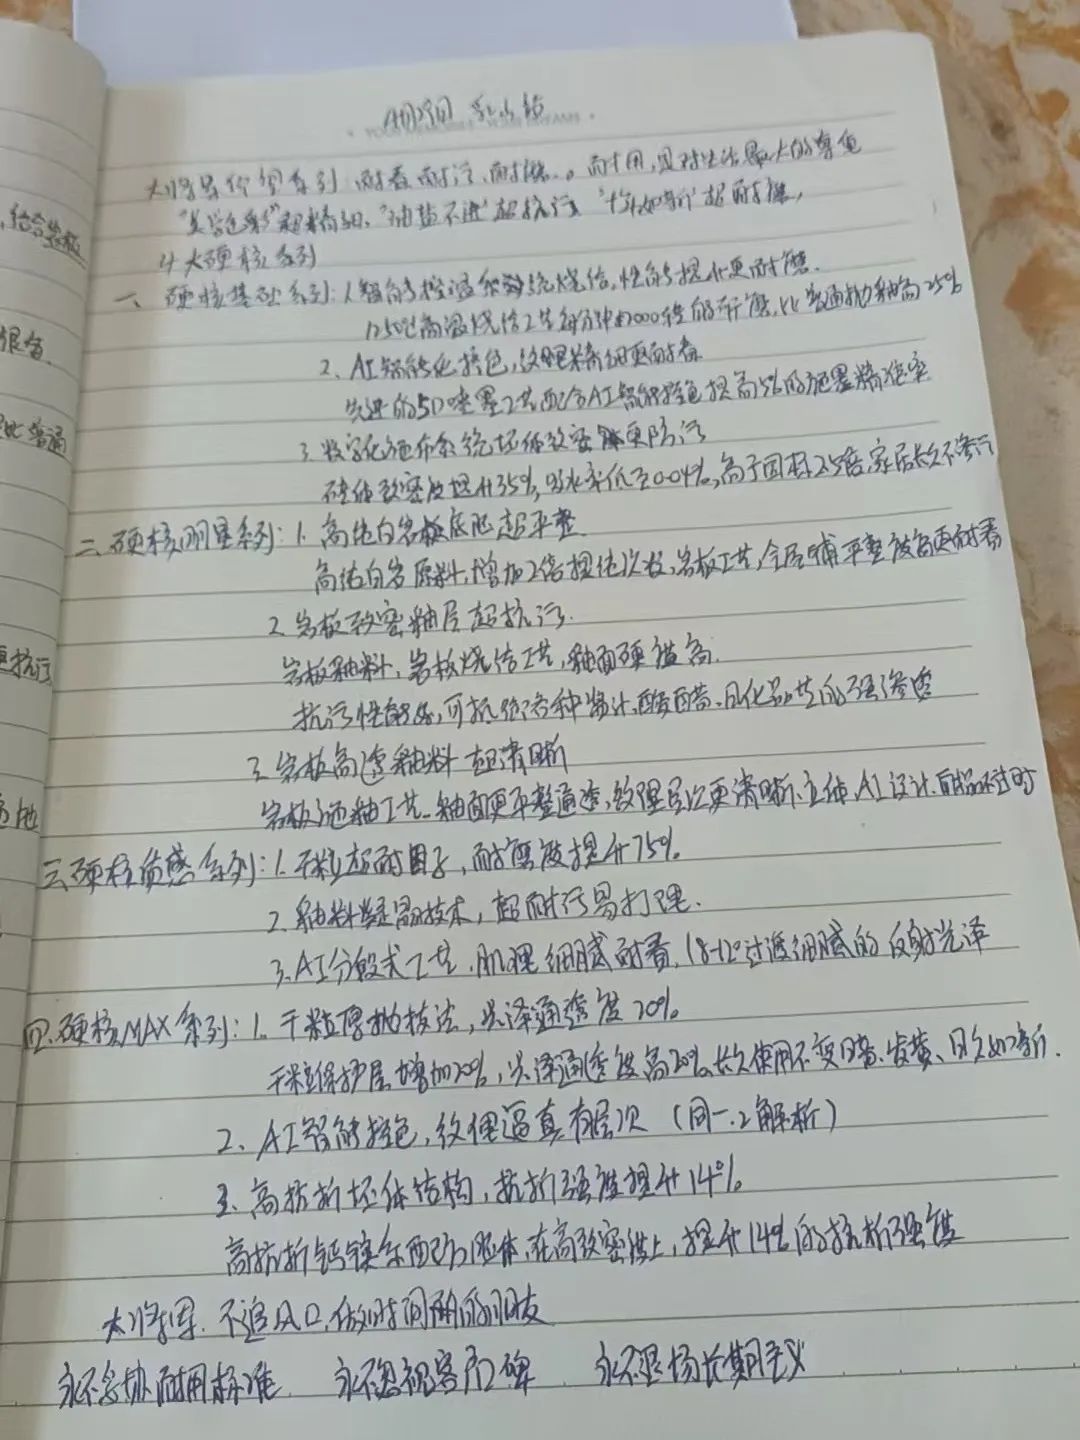 YOUR MEMORIES YOUR DREAMS
大将军 系列:耐看、耐污、耐磨。耐用,是对生活最大的尊重
“美学色彩”超精细、“油盐不进”超抗污、“十年如新”超耐磨,
4大硬核系列
一、硬核基础系列:1.智能控温 烧结,性能提升更耐磨.
1250℃高温烧结工艺 的研磨,比普通抛釉高25%
2、AI智能化控色,纹理精细更耐看
先进的5D喷墨工艺配合AI智能控色提高 的施墨精准率
3.数字化施布系统坯体致密 更防污
砖体致密度提升35%,吸水率低至0.04%,高于国标 倍,家居长久不渗污
二、硬核明星系列:1.高纯白岩板底胚超平整
高纯白岩原料,增加2倍提纯次数,岩板工艺,全屋铺平整 更耐看
2.岩板致密釉层超抗污.
岩板釉料,岩板烧结工艺,釉面硬 高.
抗污性能好,可抵 各种酱汁、酸醋、日化品 的强渗透
3.岩板高透釉料 超清晰
岩板施釉工艺.釉面更平整通透,纹理层次更清晰、立体,AI设计、 不过时
三.硬核质感系列:1.干粒超耐因子,耐磨度提升75%.
2.釉料凝晶技术,超耐污易打理.
3.AI分段式工艺.肌理细腻耐看, 过渡细腻的反射光泽
四.硬核MAX系列:1.干粒厚抛技法,光泽通透度20%
干粒保护层增加20%,光泽通透度高20%,长久使用不变暗、发黄、日久如新.
2、AI智能控色,纹理逼真有层次(同一.2解析)
3.高抗折坯体结构,抗折强度提升14%.
高抗折钙镁 配方胚体,在高致密性上,提升14%的抗折强度
大将军.不追风口,做时间的朋友
永不妥协耐用标准 永不忽视客户口碑 永不退场长期主义
结合岩板
很省
比普通
抗污